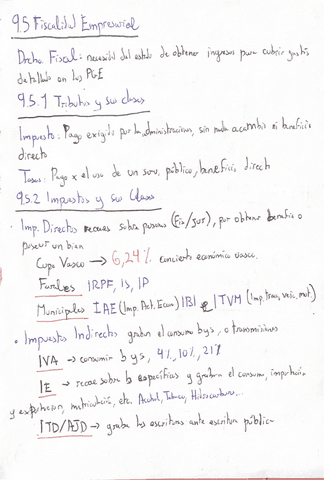 9.5 Fiscalidad Empresarial
Drcho Fiscal: necesidad del estado de obtener ingresos para cubrir gastos
detallado en los PGE
9.5.1 Tributos y sus clases
Impuesto: Pago exigido por la administraciones, sin nada a cambio ni beneficio
directo
Tasas: Pago x el uso de un serv. público, beneficio directo
9.5.2 Impuestos y sus Clases
· Imp. Directos recaes sobre personas (Fis/Jur), por obtener beneficio o
poseer un bien
Cupo Vasco → 6,24% concierto económico vasco.
Forales IRPF, IS, IP
Municipales IAE (Imp. Act. Econ) IBI e ITVM (Imp. trac, vehic, mot.)
· Impuestos Indirectos graban el consumo b y s, o transmisiones
IVA → consumir b y s, 4%, 10%, 21%
IE → recae sobre b específicos y graban el consumo, importación
y exportacion, matriculación, etc. Alcohol, Tabaco, Hidrocarburos...
ITD/AJD → graba las escrituras ante escritura pública